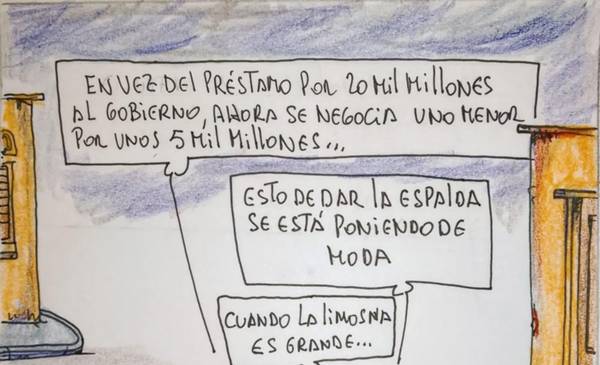 EN VEZ DEL PRÉSTAMO POR 20 MIL MILLONES
AL GOBIERNO, AHORA SE NEGOCIA UNO MENOR
POR UNOS 5 MIL MILLONES...
ESTO DE DAR LA ESPALDA
SE ESTÁ PONIENDO DE
MODA
CUANDO LA LIMOSNA
ES GRANDE...